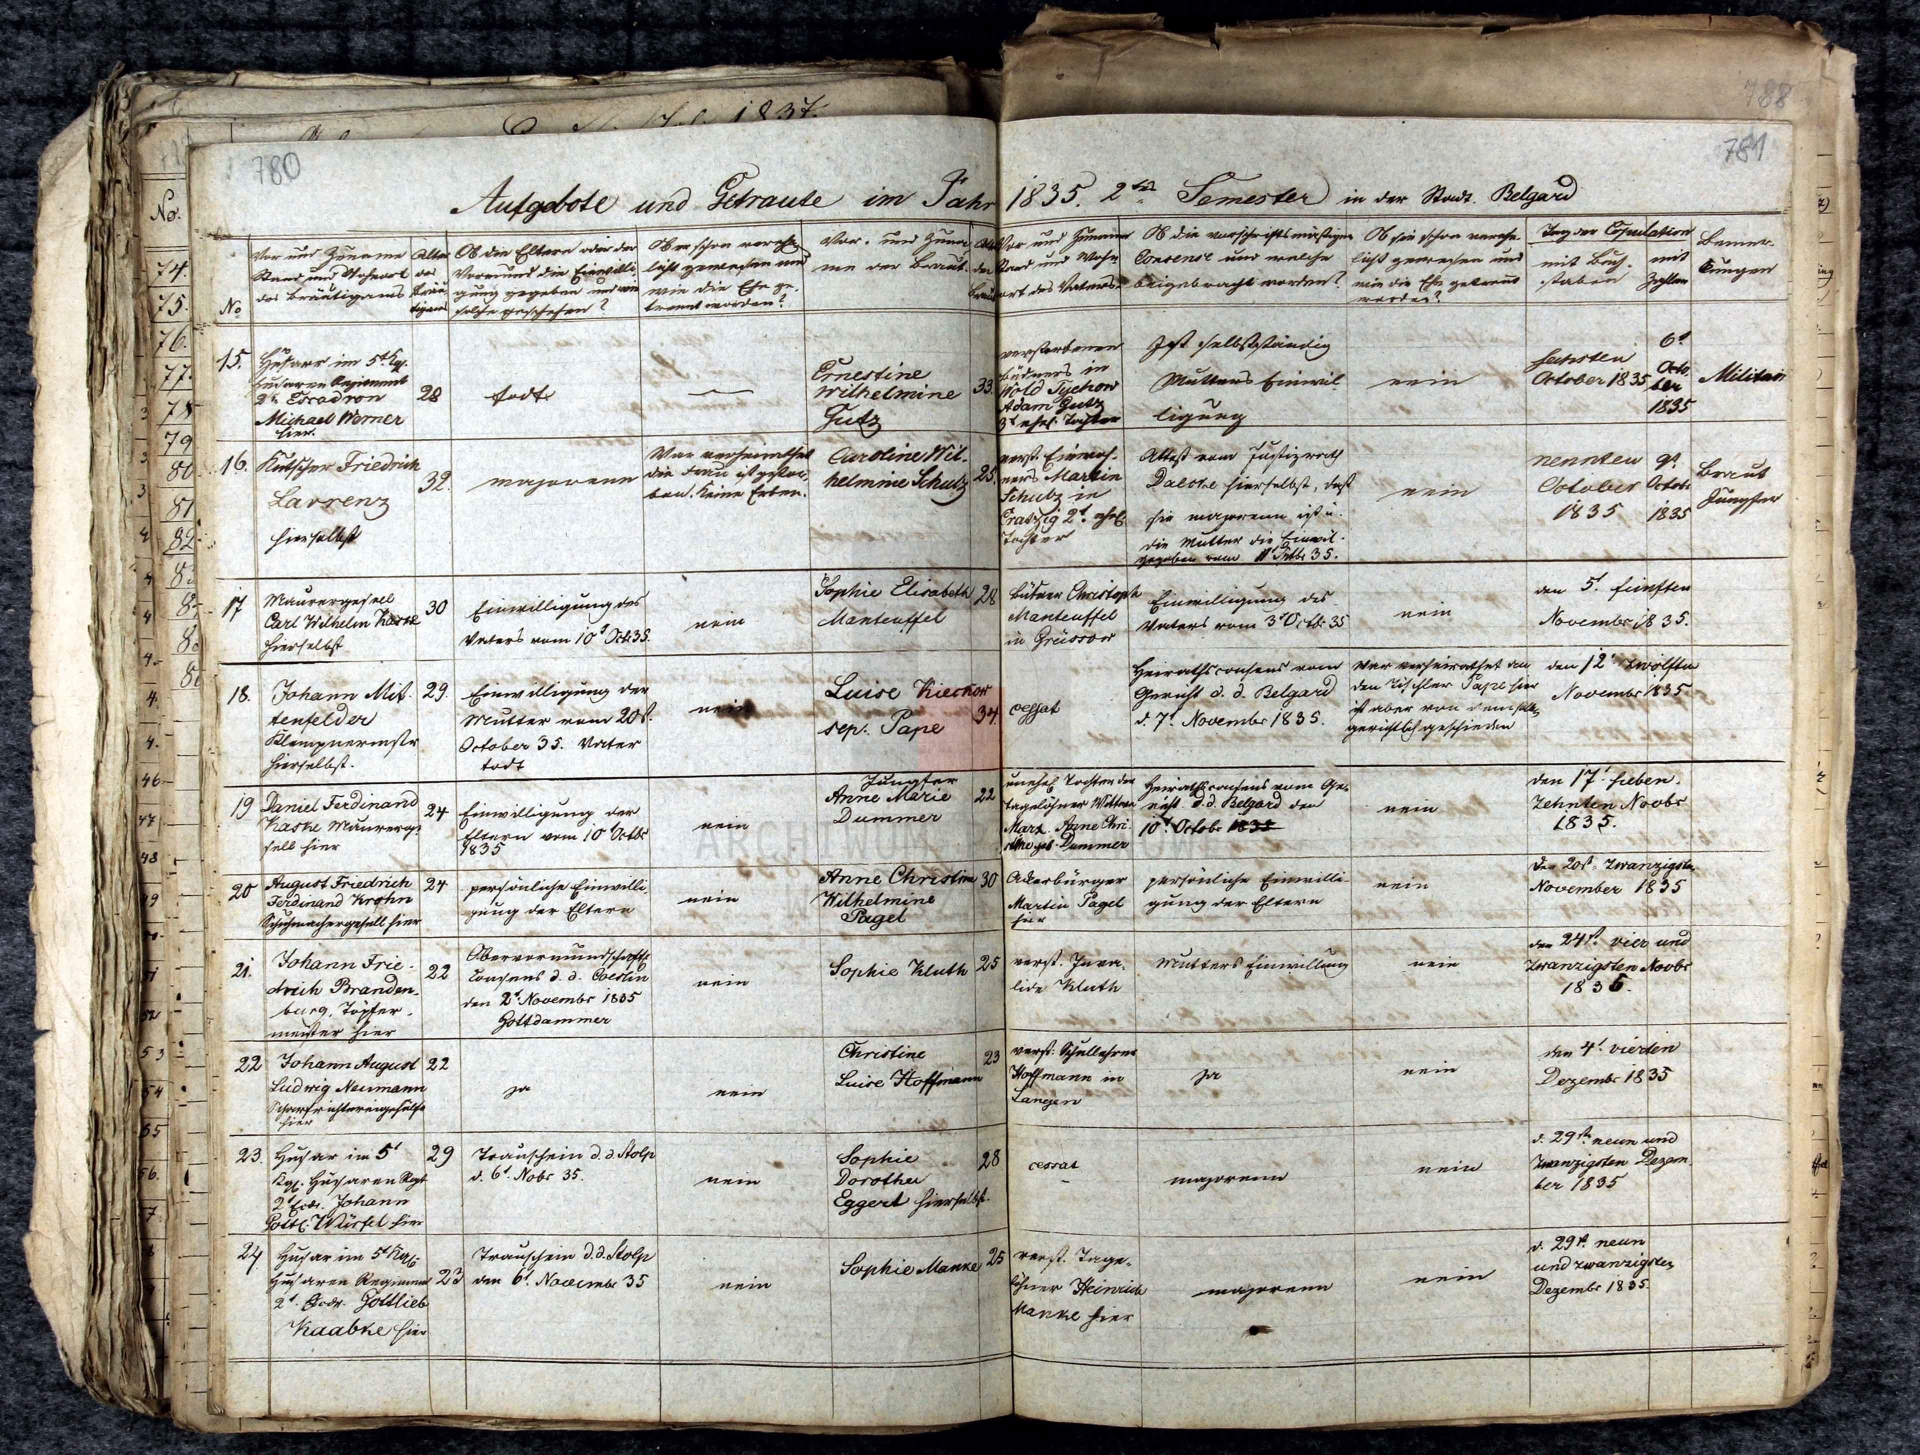 780
781
788
1837.
Aufgebote und Getraute im Jahr 1835. 2tes Semester in der Stadt Belgard
No
Vor und Zuname
Stand und Wohnort
des Bräutigams
Alter
des
Bräu
tigams
Ob die Eltern oder der
Vormund die Einwilli
gung gegeben und wie
solche geschehen?
Ob er schon verehe
licht gewesen und
wie die Ehe ge
trennt worden?
Vor- und Zuna
me der Braut
Vor und Zuname
Stand und Wohn
ort des Vaters
Ob die vorschriftsmäßigen
Consense und welche
beigebracht worden?
Ob sie schon verehe
licht gewesen und
wie die Ehe getrennt
worden?
Tag der Copulation
mit Buch-
staben
mit
Zahlen
Bemer-
kungen
15.
Husar im 5t Kgl.
Husaren Regiment
2t Escadron
Michael Werner
hier.
28
todt
Ernestine
Wilhelmine
Gutz
33.
verstorbenen
Büdners in
Wold Tychow
Adam Gutz
3t ehel. Tochter
Ist selbstständig
Mutters Einwil
ligung
nein
sechsten
October 1835
6t
Octo
ber
1835
Militair
16.
Kutscher Friedrich
Lavrenz
hierselbst
32.
majorenn
War verheirathet
die Frau ist gestor
ben. Keine Erben.
Caroline Wil-
helmine Schutz
25.
verst. Einwoh-
ners Martin
Schutz in
2t ehel.
Tochter
Attest vom Justizrath
hierselbst, daß
sie majorenn ist u.
die Mutter die Einwil-
gegeben vom 35.
nein
neunten
October
1835
9t
Octobr
1835
Braut
Jungfer
17
Maurergesell
Carl Wilhelm Kaske
hierselbst
30
Einwilligung des
Vaters vom 10t Octb 35.
nein
Sophie Elisabeth
Manteuffel
28
Büdner Christoph
Manteuffel
in Grüssow
Einwilligung des
Vaters vom 3t Octbr 35
nein
den 5t fünften
November 1835.
18.
Johann Mit-
tenfelder
Klempnermstr
hierselbst.
29.
Einwilligung der
Mutter vom 20st
October 35. Vater
todt
nein
Luise Kieckow
sep. Pape
34.
cessat
Heirathsconsens vom
Gericht d. d. Belgard
d. 7t November 1835.
War verheirathet an
den Tischler Pape hier
ist aber von demselben
gerichtlich geschieden
den 12t zwölften
November 1835.
19
Daniel Ferdinand
Kaske Maurerge
sell hier
24
Einwilligung der
Eltern vom 10t Octbr
1835
nein
Jungfer
Anne Marie
Dummer
22
unehel. Tochter der
Tagelöhner Wittwe
Marx. Anne Chri-
stine geb. Dummer
Heirathsconsens vom Ge-
richt d. d. Belgard den
10t Octobr 1835
nein
den 17t sieben-
zehnten Novbr
1835.
20
August Friedrich
Ferdinand Krohn
Schuhmachergesell hier
24
persönliche Einwilli
gung der Eltern
nein
Anne Christine
Wilhelmine
Pagel
30
Ackerbürger
Martin Pagel
hier
persönliche Einwilli
gung der Eltern
nein
den 20st zwanzigsten
November 1835
21.
Johann Frie-
drich Branden-
burg, Töpfer-
meister hier
22
Obervormundschaftl.
Consens d. d. Coeslin
den 2t November 1835
Gottdammer
nein
Sophie Kluth
25
verst. Inva-
lide Kluth
Mutters Einwilligung
nein
den 24st vier und
zwanzigsten Novbr
1835.
22
Johann August
Ludwig Neumann
Scharfrichtereigehülfe
hier
22
ja
nein
Christine
Luise Hoffmann
23
verst: Schullehrer
Hoffmann in
Langen
ja
nein
den 4t vierten
Dezembr 1835
23.
Husar im 5t
Kgl. Husaren Regt
2t Escdr. Johann
Gottl. Würfel hier
29
Trauschein d. d. Stolp
d. 6t Nobr 35.
nein
Sophie
Dorothea
Eggert hierselbst.
28
cessat
majorenn
nein
d. 29st neun und
zwanzigsten Dezem
ber 1835
24
Husar im 5t Kgl.
Husaren Regiment
2t Escdr. Gottlieb
Kaabke hier
23
Trauschein d. d. Stolp
den 6t Novembr 35
nein
Sophie Manke
25
verst. Tage-
löhner Heinrich
Manke hier
majorenn
nein
d. 29st neun
und zwanzigsten
Dezembr 1835.